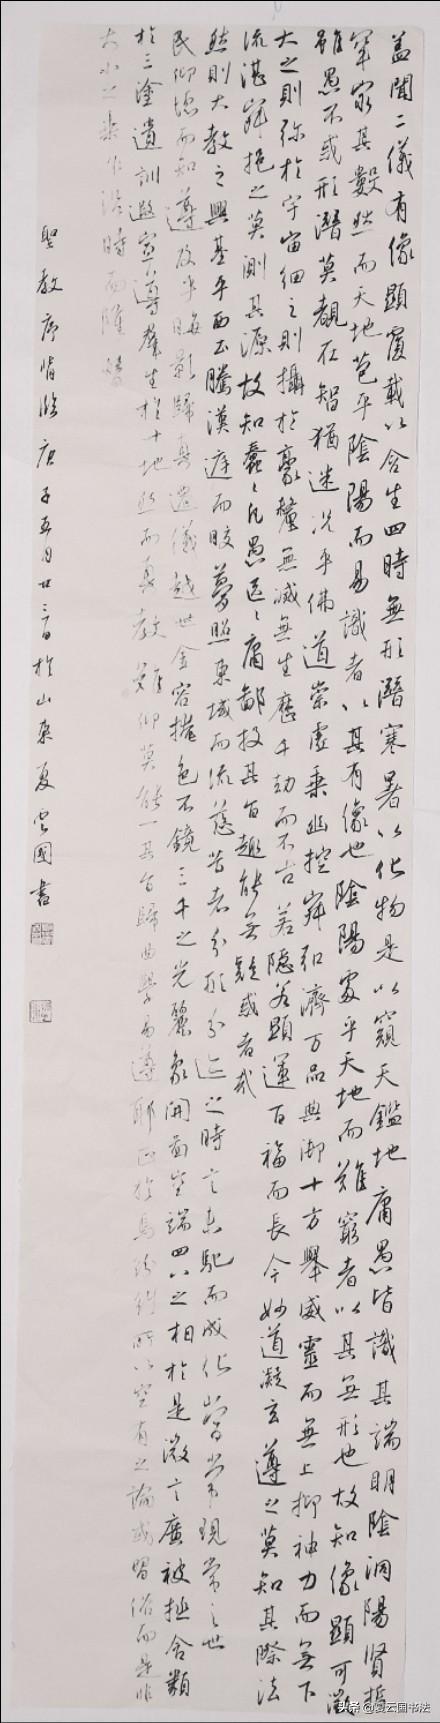 盖聞二儀有像顯覆載以含生四時無形潛寒暑以化物是以窺天鑑地庸愚皆識其端明陰洞陽賢哲
罕窮其數然而天地苞乎陰陽而易識者以其有像也陰陽處乎天地而難窮者以其無形也故知像顯可徵
雖愚不惑形潛莫覩在智猶迷況乎佛道崇虛乘幽控寂弘濟万品典御十方舉威靈而無上抑神力而無下
大之則弥於宇宙細之則攝於豪釐無滅無生歷千劫而不古若隱若顯運百福而長今妙道凝玄遵之莫知其際法
流湛寂挹之莫測其源故知蠢〻凡愚區〻庸鄙投其旨趣能無疑或者哉
然則大教之興基乎西土騰漢庭而皎夢照東域而流慈昔者分形分迹之時言未馳而成化當常現常之世
民仰德而知遵及乎晦影歸真遷儀越世金容掩色不鏡三千之光麗象開圖空端四八之相於是微言廣被拯含類
於三塗遺訓遐宣導群生於十地然而真教難仰莫能一其旨歸曲學易遵耶正於焉紛糾所以空有之論或習俗而是非
大小之乘乍沿時而隆替
聖教序臨庚子五月廿三日於山東夏雲國書
头条 @夏云国书法